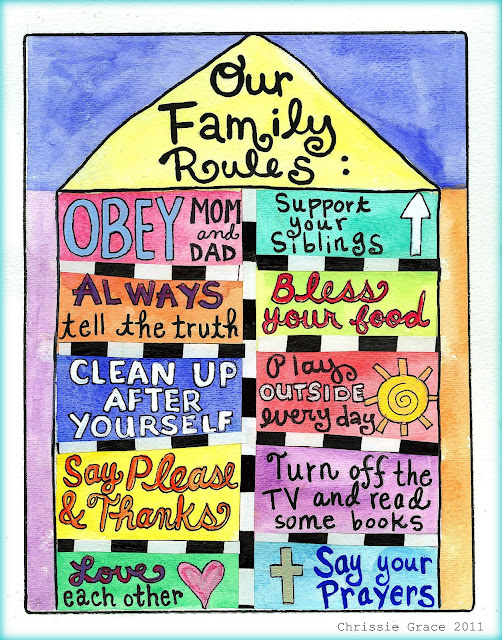 Our
Family
Rules:
OBEY MOM
and
DAD
Support
your
Siblings
ALWAYS
tell the truth
Bless
your food
CLEAN UP
AFTER
YOURSELF
Play
OUTSIDE
every day
Say Please
& Thanks
Turn off the
TV and read
some books
Love
each other
Say your
Prayers
Chrissie Grace 2011